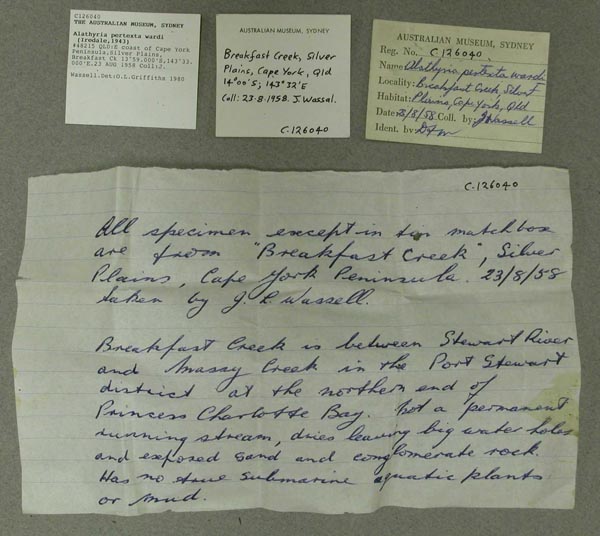 C126040
THE AUSTRALIAN MUSEUM, SYDNEY
Alathyria pertexta wardi
(Iredale,1943)
#48215 QLD:E coast of Cape York
Peninsula,Silver Plains,
Breakfast Ck 13°59.000'S,143°33.
000'E.23 AUG 1958 Coll:J.
Wassell.Det:O.L.Griffiths 1980
AUSTRALIAN MUSEUM, SYDNEY
Breakfast Creek, Silver
Plains, Cape York, Qld
14°00'S; 143°32'E
Coll: 23.8.1958. J. Wassal.
C.126040
AUSTRALIAN MUSEUM, SYDNEY
Reg. No. C.126040.
Name Alathyria pertexta wardi
Locality: Breakfast Creek, Silver
Habitat: Plains, Cape York, Qld
Date: 23/8/58 Coll. by: J Wassell
Ident. by:
C.126040
All specimen except in tin matchbox
are from "Breakfast Creek", Silver
Plains, Cape York Peninsula. 23/8/58
taken by J. L. Wassell.
Breakfast Creek is between Stewart River
and Massy Creek in the Port Stewart
district at the northern end of
Princess Charlotte Bay. Not a permanent
running stream, dries leaving big water holes
and exposed sand and conglomerate rock.
Has no true submarine aquatic plants
or mud.